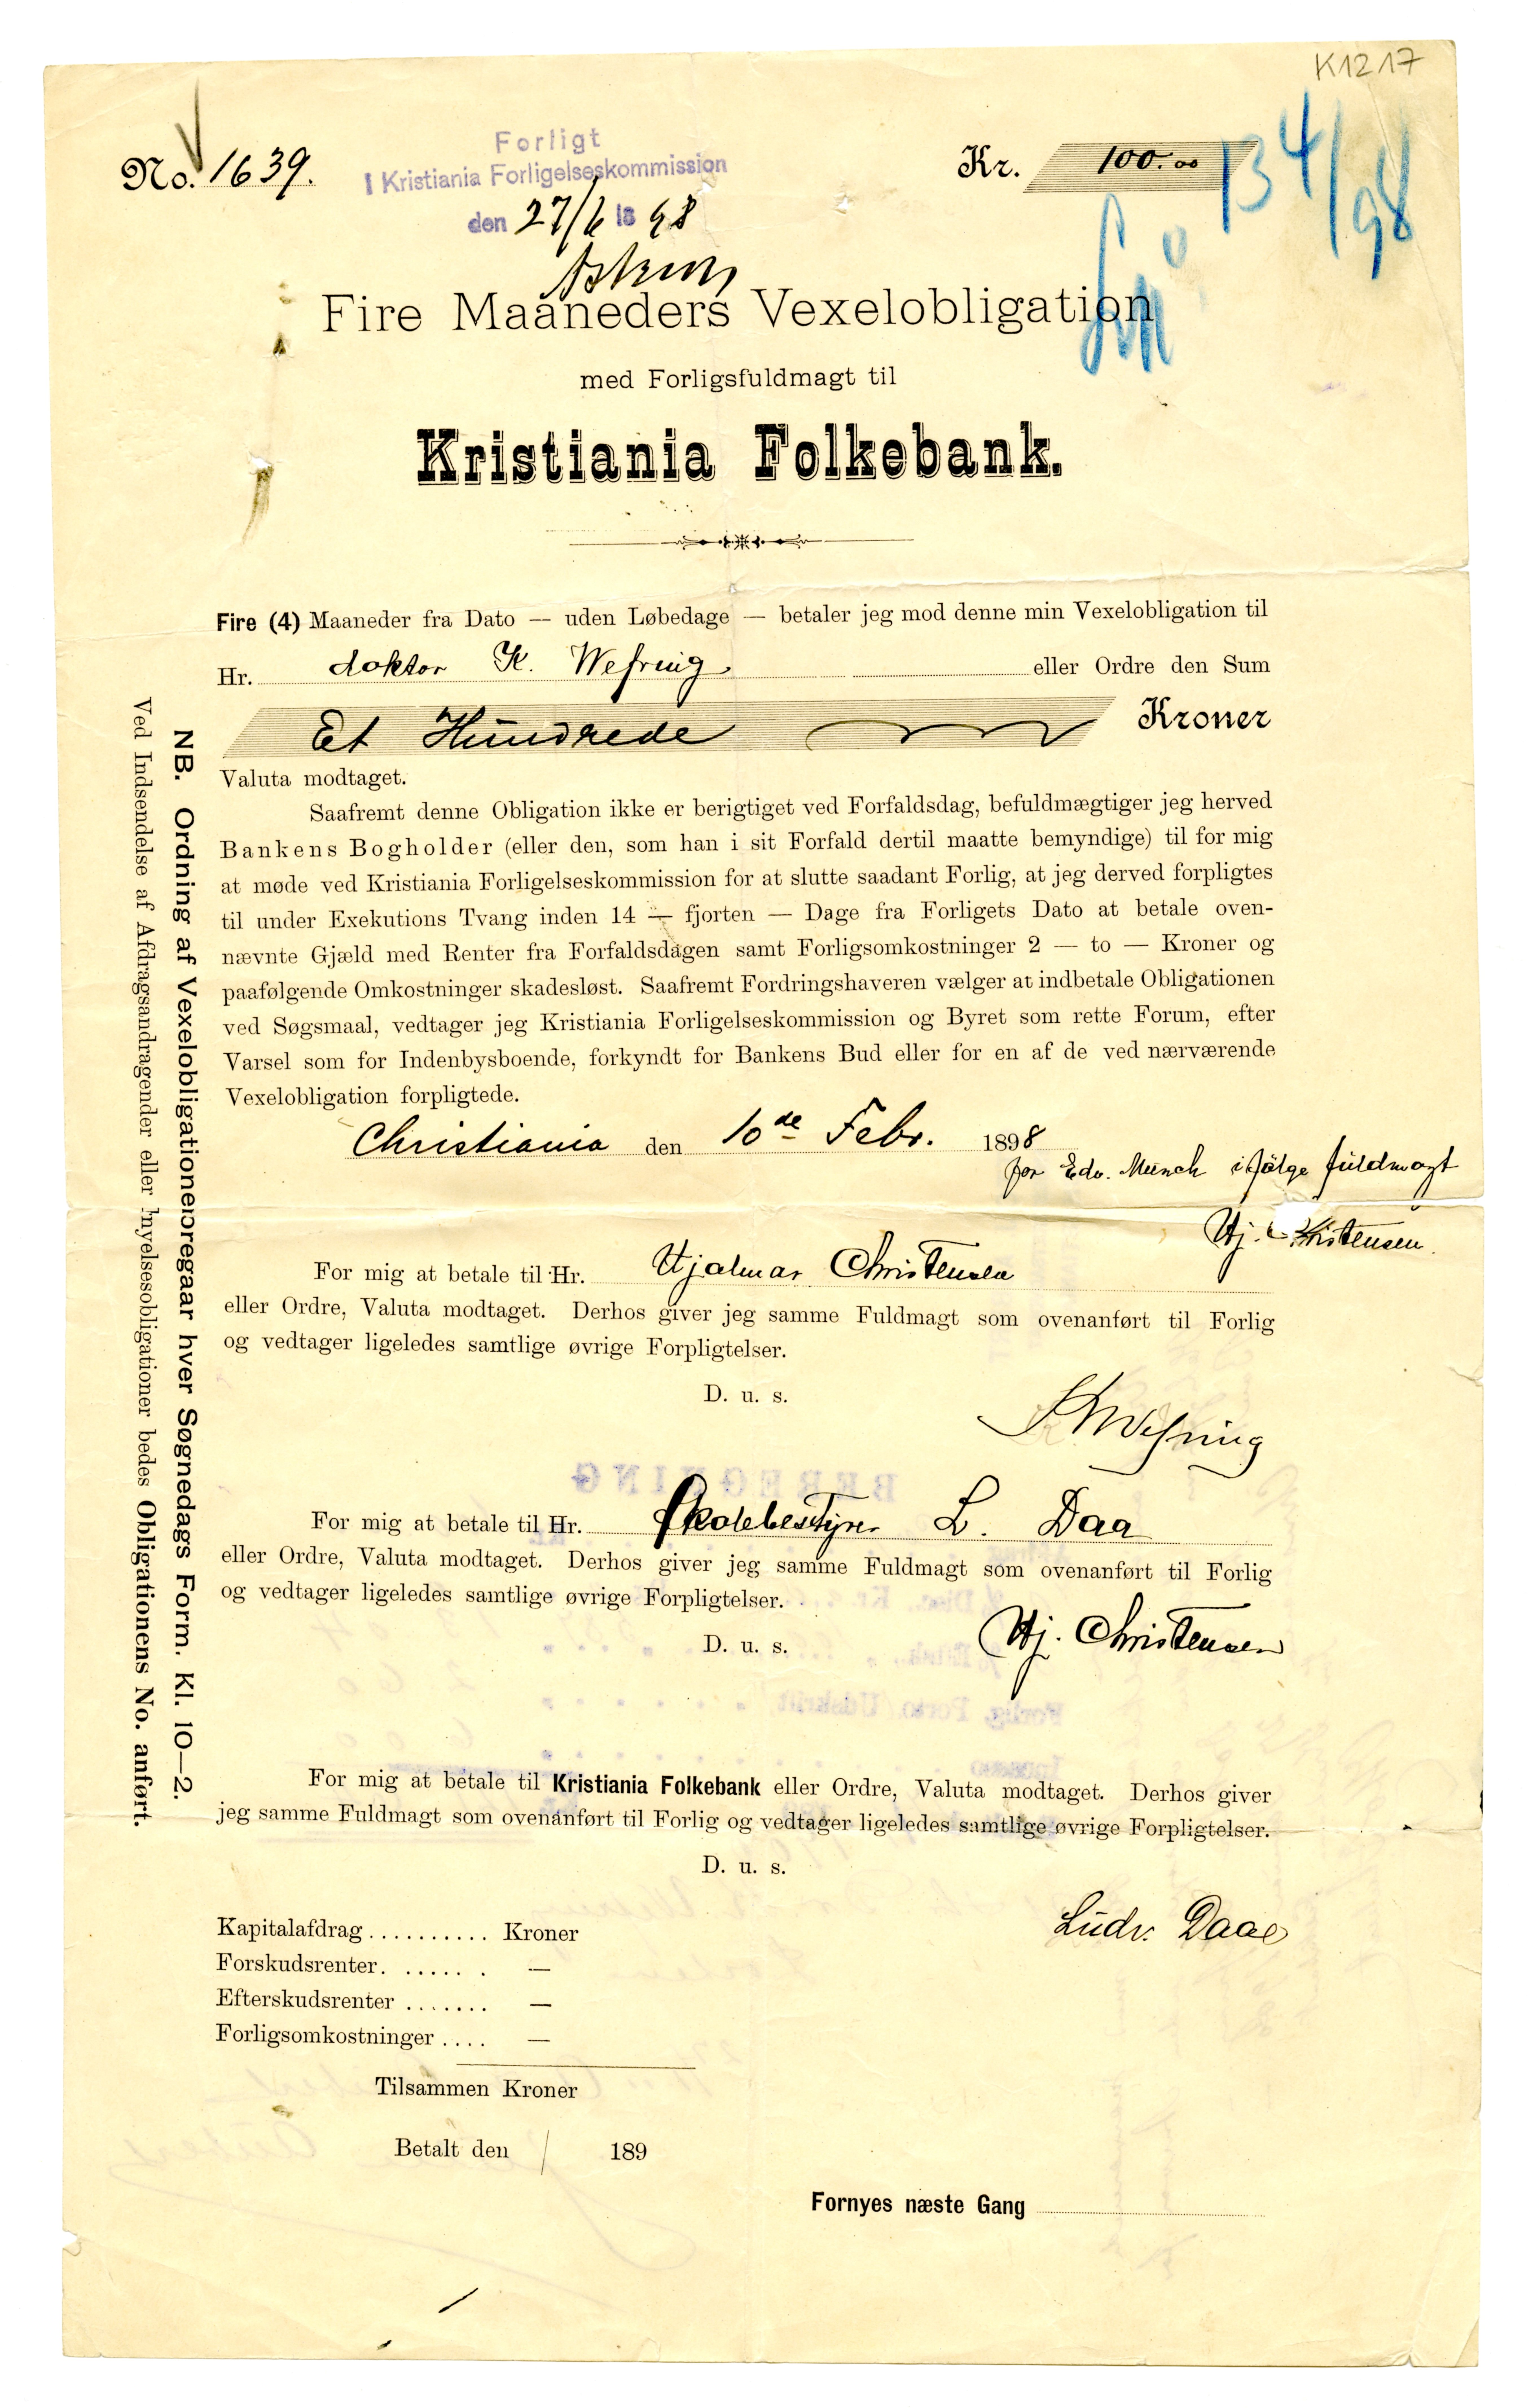 K1217
No. 1639.
Forligt
I Kristiania Forligelseskommission
den 27/6 18 98
Kr. 100.00
13 4/98
Fire Maaneders Vexelobligation
med Forligsfuldmagt til
Kristiania Folkebank.
Fire (4) Maaneder fra Dato — uden Løbedage — betaler jeg mod denne min Vexelobligation til
Hr. doktor K. Wefring eller Ordre den Sum
Et Hundrede Kroner
Valuta modtaget.
Saafremt denne Obligation ikke er berigtiget ved Forfaldsdag, befuldmægtiger jeg herved
Bankens Bogholder (eller den, som han i sit Forfald dertil maatte bemyndige) til for mig
at møde ved Kristiania Forligelseskommission for at slutte saadant Forlig, at jeg derved forpligtes
til under Exekutions Tvang inden 14 — fjorten — Dage fra Forligets Dato at betale oven-
nævnte Gjæld med Renter fra Forfaldsdagen samt Forligsomkostninger 2 — to — Kroner og
paafølgende Omkostninger skadesløst. Saafremt Fordringshaveren vælger at indbetale Obligationen
ved Søgsmaal, vedtager jeg Kristiania Forligelseskommission og Byret som rette Forum, efter
Varsel som for Indenbysboende, forkyndt for Bankens Bud eller for en af de ved nærværende
Vexelobligation forpligtede.
Christiania den 10de Febr. 1898
for Edv. Munch ifölge fuldmagt
Hj. Christensen.
For mig at betale til Hr. Hjalmar Christensen
eller Ordre, Valuta modtaget. Derhos giver jeg samme Fuldmagt som ovenanført til Forlig
og vedtager ligeledes samtlige øvrige Forpligtelser.
D. u. s.
K Wefring
For mig at betale til Hr. Skolebestyrer L. Daa
eller Ordre, Valuta modtaget. Derhos giver jeg samme Fuldmagt som ovenanført til Forlig
og vedtager ligeledes samtlige øvrige Forpligtelser.
D. u. s.
Hj. Christensen
For mig at betale til Kristiania Folkebank eller Ordre, Valuta modtaget. Derhos giver
jeg samme Fuldmagt som ovenanført til Forlig og vedtager ligeledes samtlige øvrige Forpligtelser.
D. u. s.
Ludv. Daae
Kapitalafdrag .......... Kroner
Forskudsrenter. ...... . —
Efterskudsrenter ....... —
Forligsomkostninger .... —
Tilsammen Kroner
Betalt den / 189
Fornyes næste Gang
NB. Ordning af Vexelobligationer foregaar hver Søgnedags Form. Kl. 10—2.
Ved Indsendelse af Afdragsandragender eller Fornyelsesobligationer bedes Obligationens No. anført.